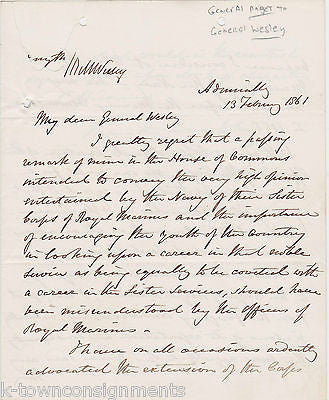 General Paget to
General Wesley
Admiralty
13 February 1861
My dear General Wesley
I greatly regret that a passing
remark of mine in the House of Commons
intended to convey the very high opinion
entertained by the Navy of their Sister
Corps of Royal Marines and the importance
of encouraging the youth of the Country
in looking upon a career in that noble
Service as being equally to be coveted with
a career in the Sister Services, should have
been misunderstood by the Officers of
Royal Marines.
I have on all occasions ardently
advocated the extension of the Corps
k-townconsignments